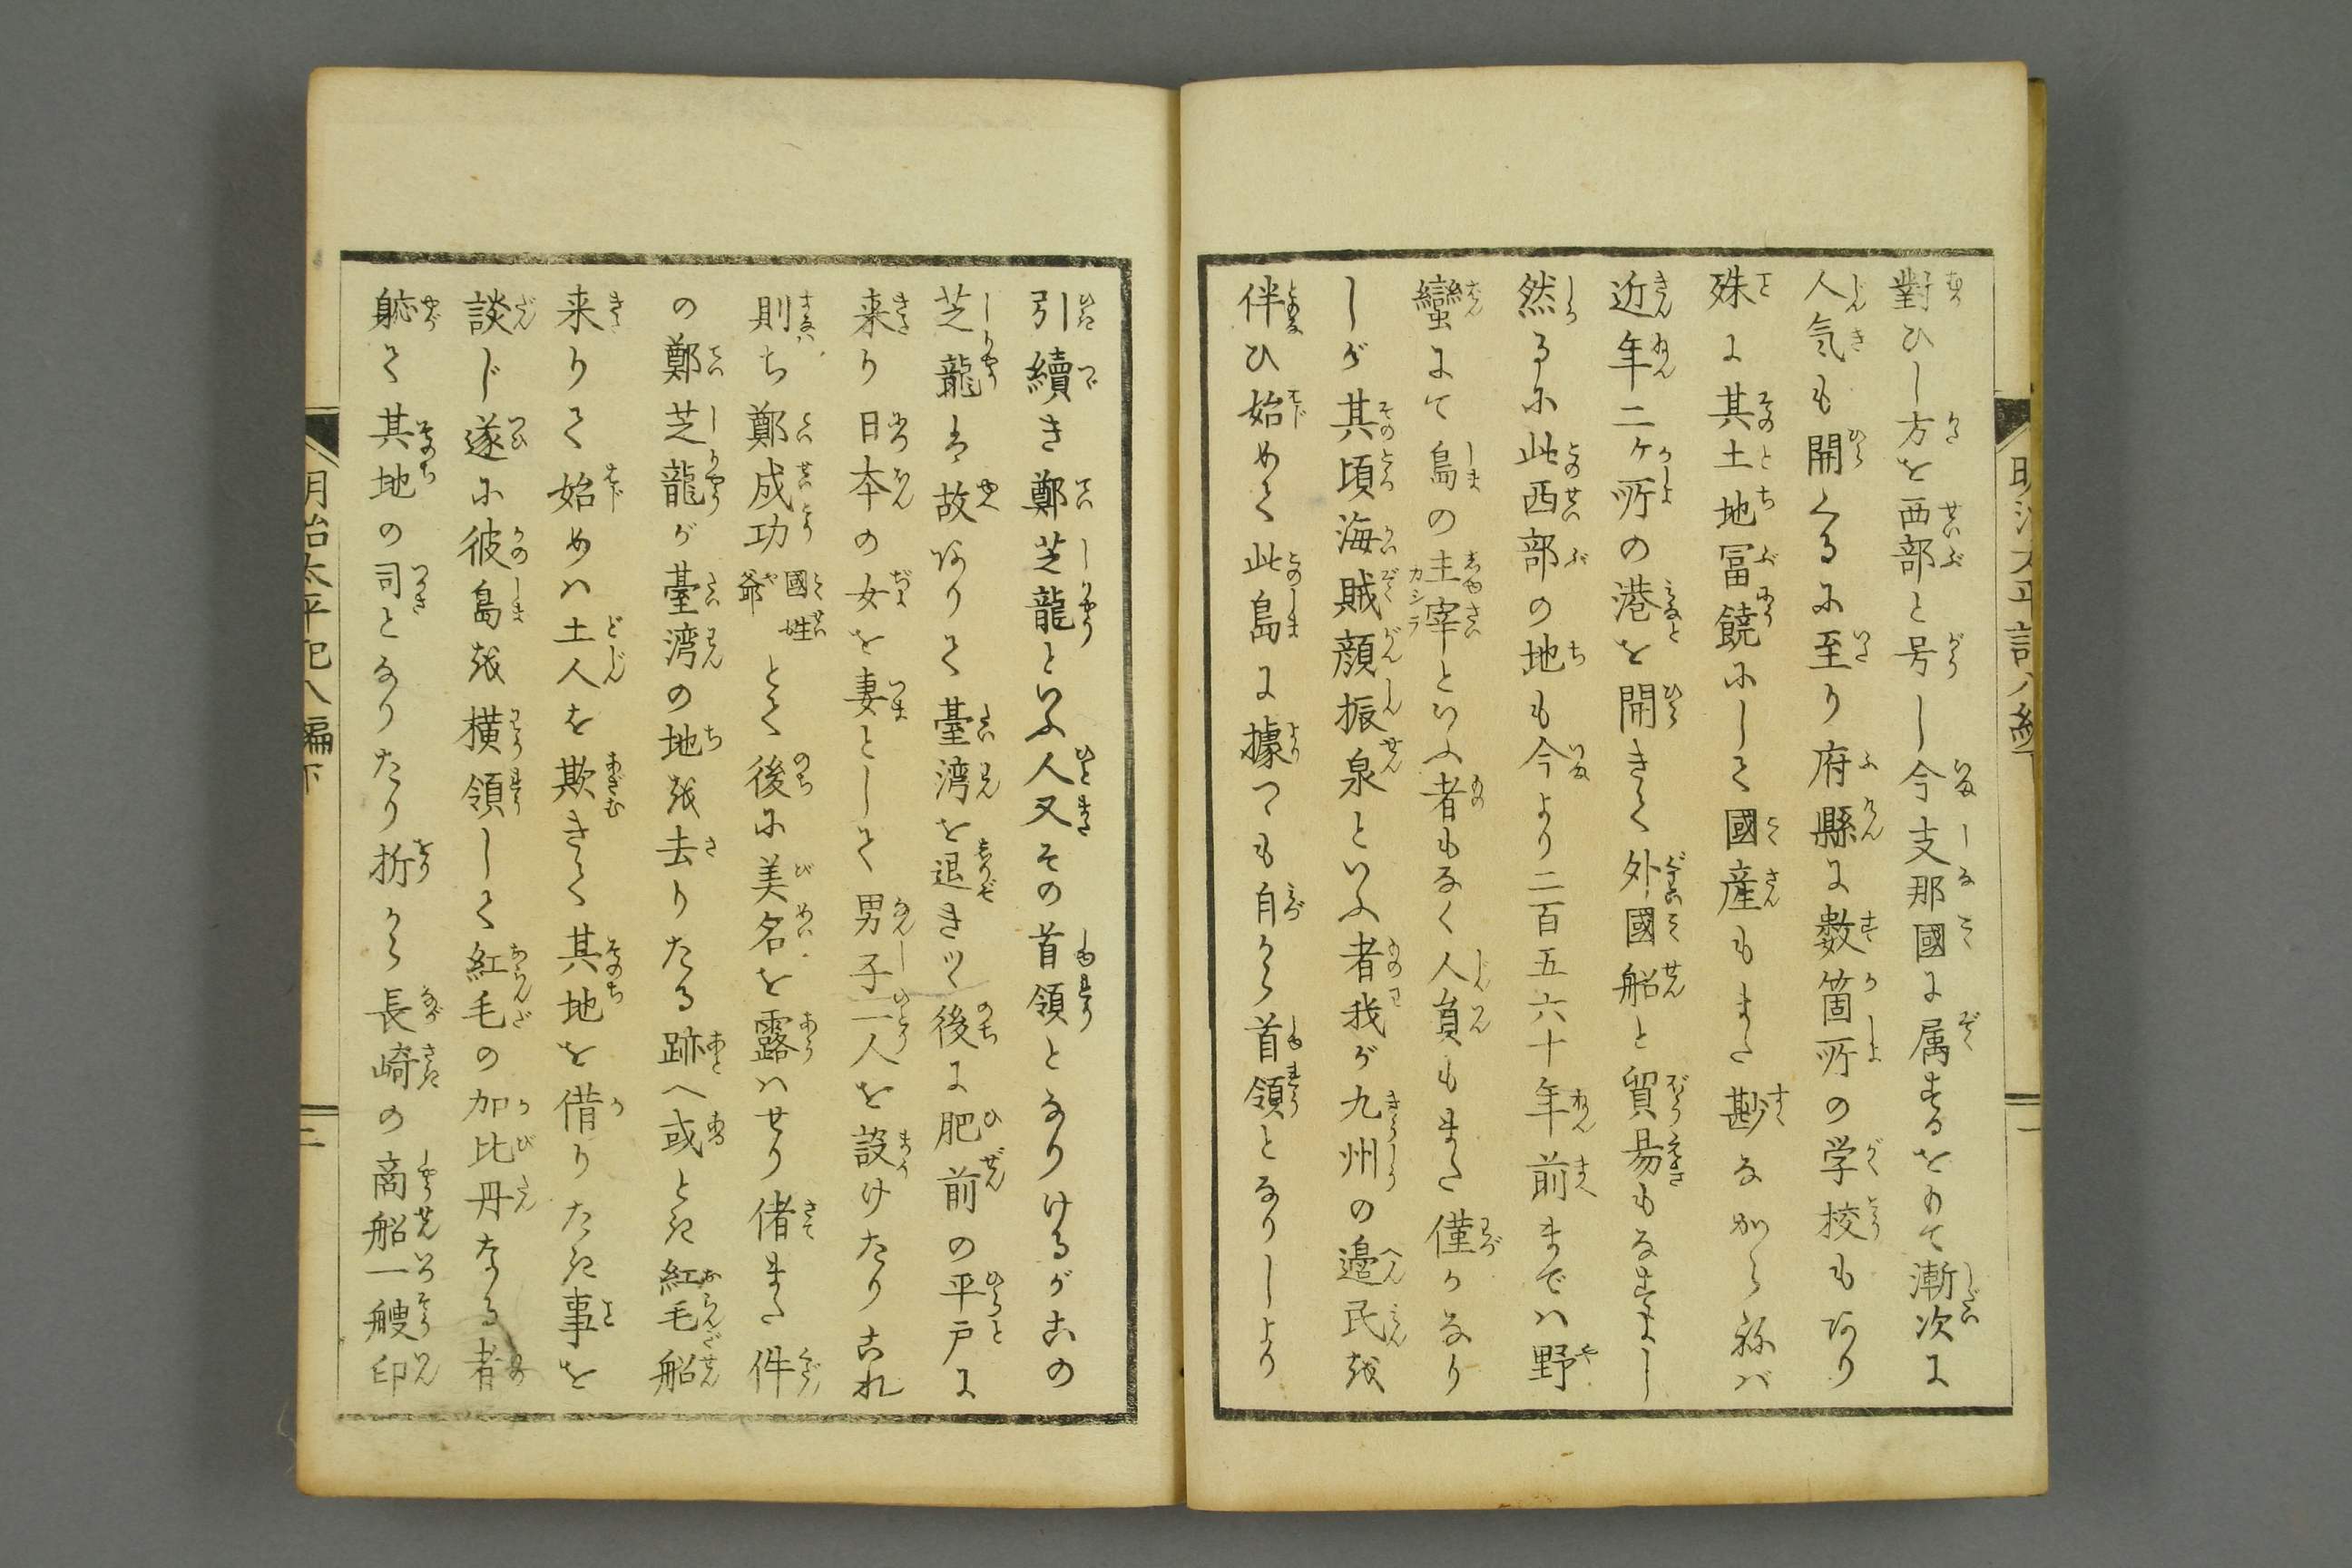 對ひし方を西部と号し今支那國に属するをもて漸次に
人気も開くるに至り府縣に數箇所の学校もあり
殊に其土地冨饒にして國産もまた尠なからねば
近年二ケ所の港を開きて外國船と貿易もなすよし
然るに此西部の地も今より二百五六十年前までハ野
蠻にて島の主宰といふ者もなく人員もまた僅かなり
しが其頃海賊顔振泉といふ者我が九州の邉民を
伴ひ始めて此島に據つも自から首領となりしより
引續き鄭芝龍といふ人又その首領となりけるがこの
芝龍は故ありて臺湾を退きつく後に肥前の平戸に
来り日本の女を妻として男子一人を設けたりこれ
則ち鄭成功國姓爺とて後に美名を露ハせり偖また件
の鄭芝龍が臺湾の地を去りたる跡へ或とき紅毛船
来りて始めハ土人を欺きて其地を借りたき事を
談じ遂に彼島を横領して紅毛の加比丹なる者
軈て其地の司となりたり折から長崎の商船一艘印
明治太平記八編下